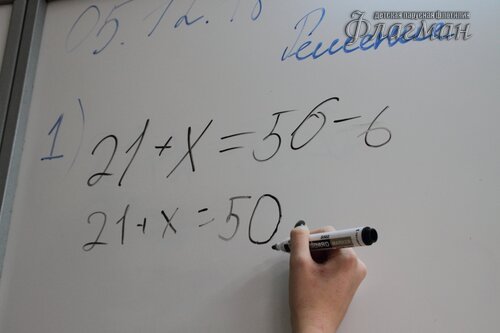 05.12.18
детская парусная флотилия
Флагман
Решение
1) 21+x=56-6
21+x=50